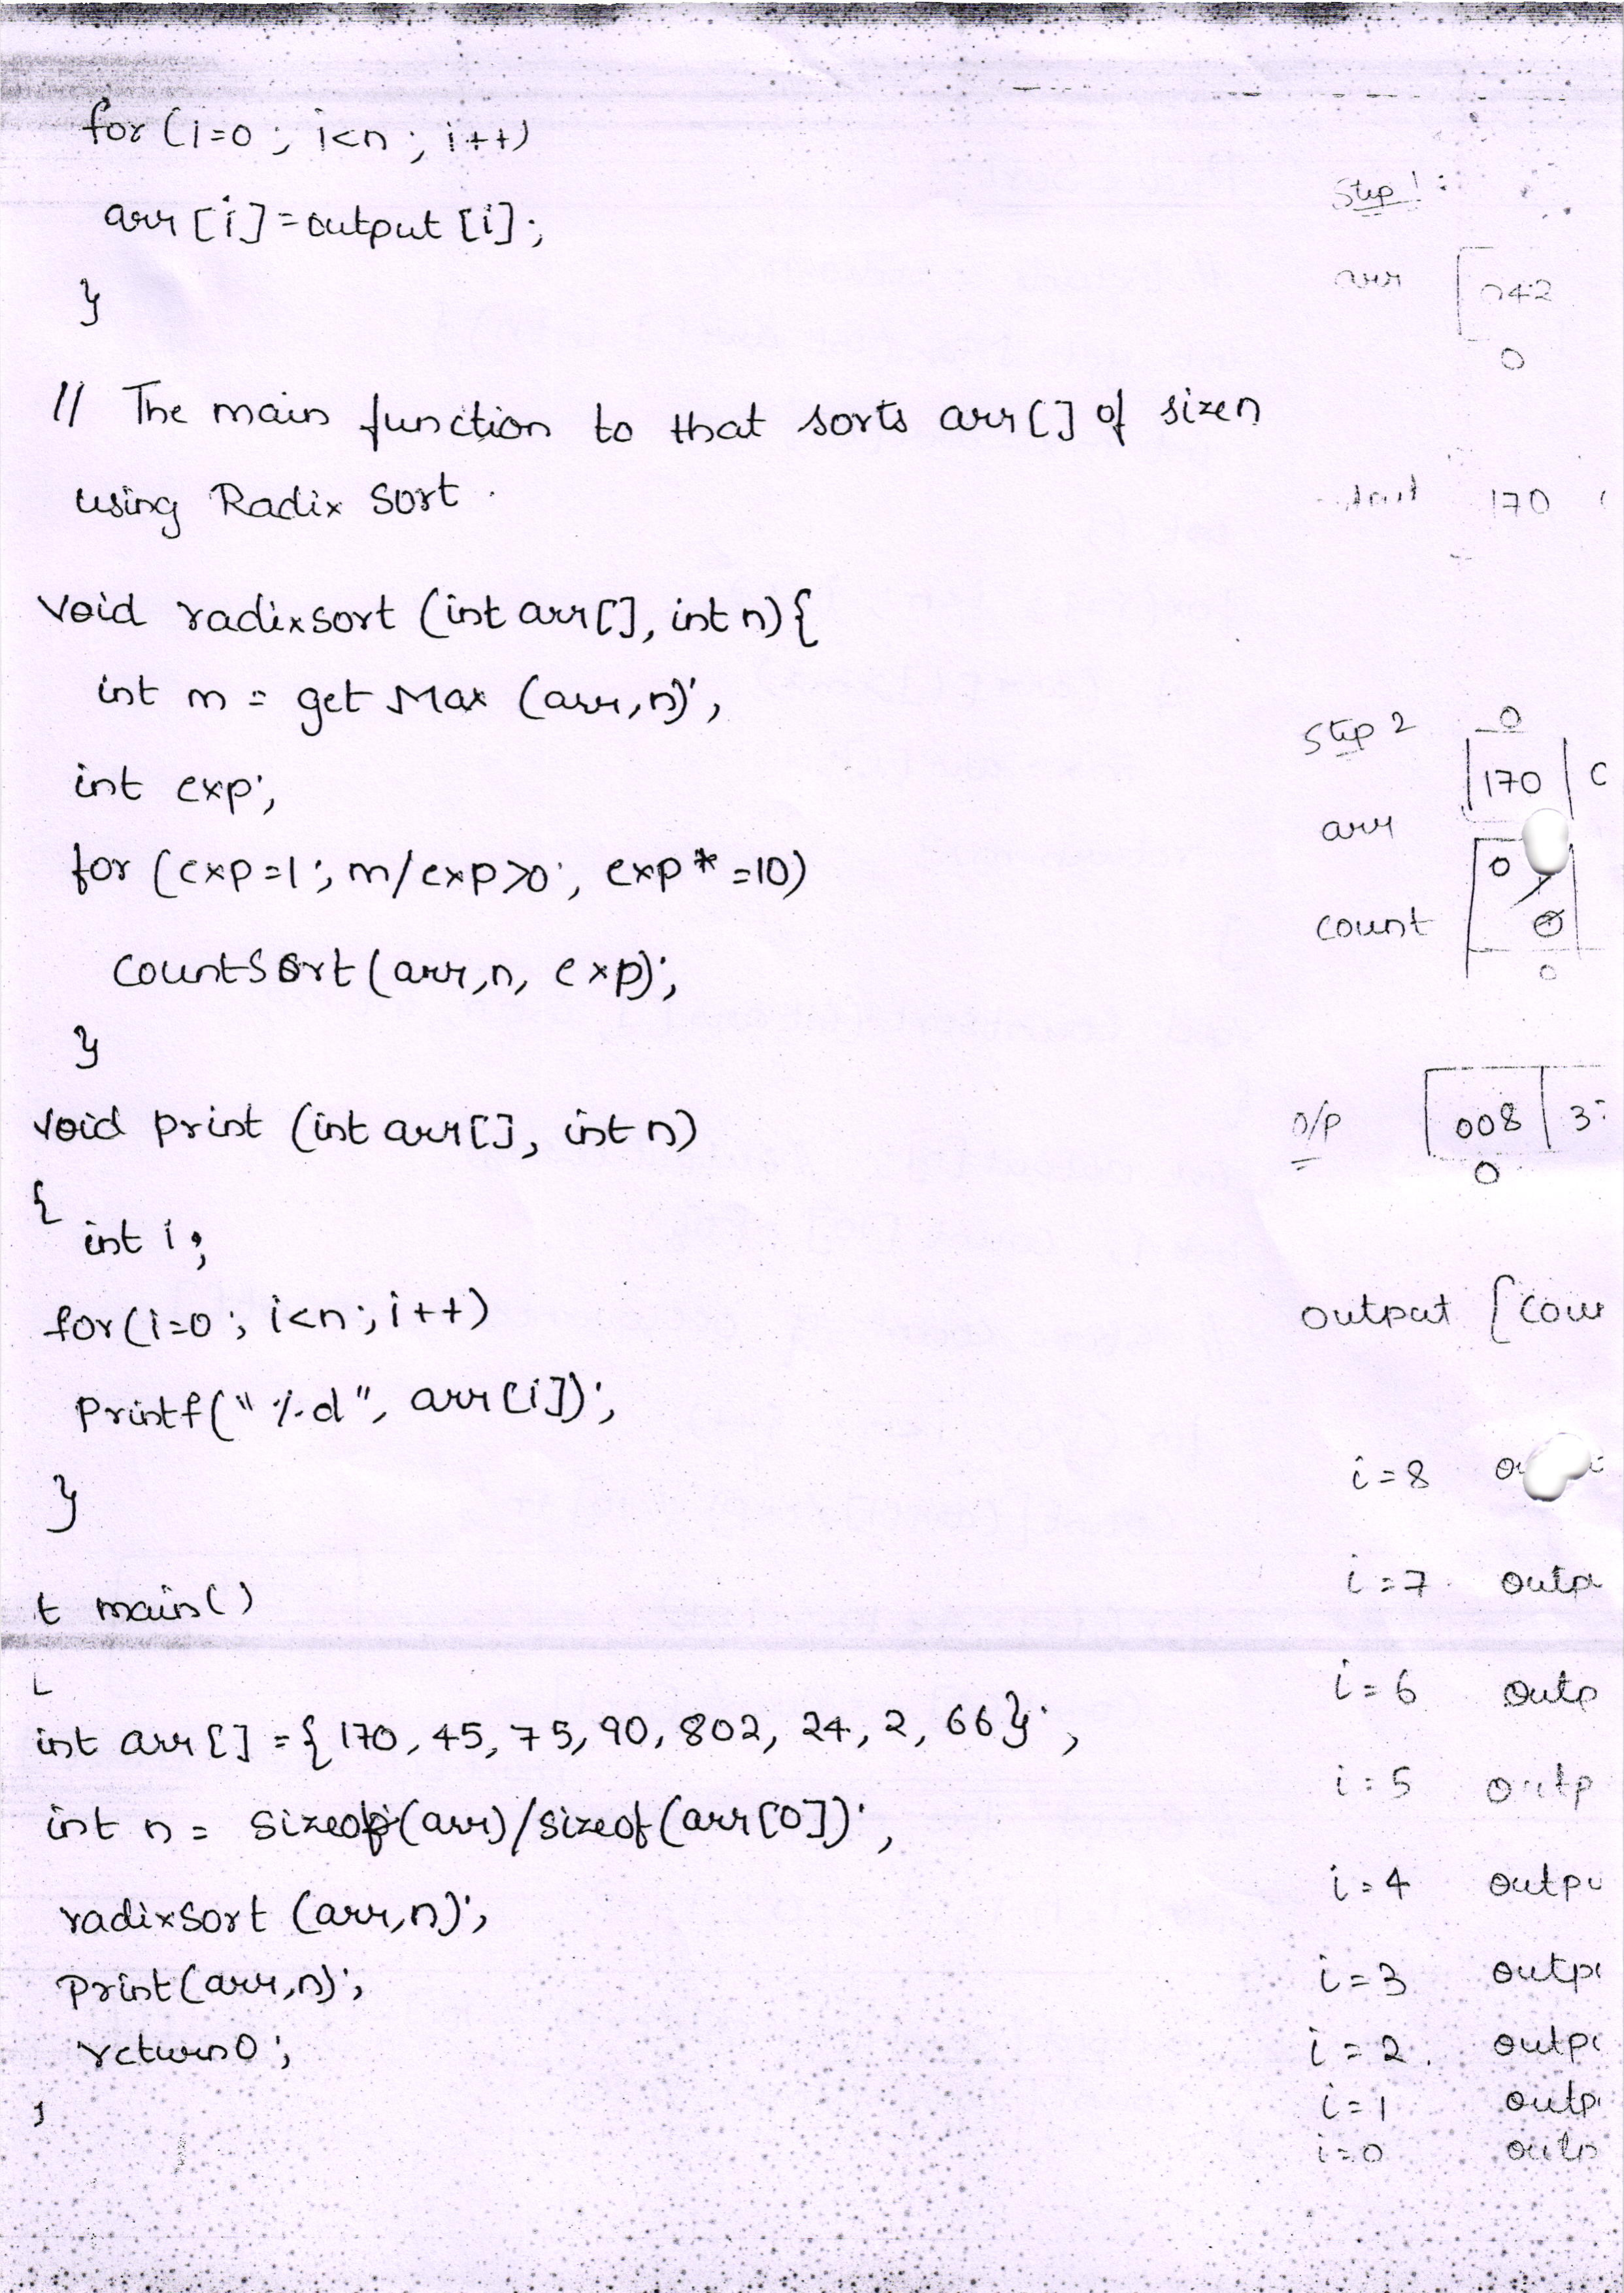 for (i=0 ; i<n ; i++)
arr [i] = output [i];
}
// The main function to that sorts arr [] of size n
using Radix Sort.
void radixsort (int arr[], int n) {
int m = get Max (arr, n);
int exp;
for (exp=1; m/exp>0; exp* =10)
countSort (arr, n, exp);
}
void print (int arr[], int n)
{
int i;
for (i=0 ; i<n ; i++)
Printf (" %d", arr [i]);
}
t main()
int arr [] = { 170, 45, 75, 90, 802, 24, 2, 66};
int n = sizeof (arr) / sizeof (arr [0]);
radixSort (arr, n);
Print (arr, n);
return 0;
Step 1:
arr 042
0
170
Step 2 0
170
arr
0
count 0
0
o/p 008
0
output [
i = 8
i = 7
i = 6
i = 5
i = 4
i = 3
i = 2.
i = 1
i = 0